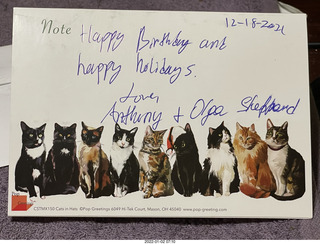 Note
12-18-2021
Happy Birthday and
happy holidays.
Love,
Anthony & Olga Sheppard
CSTMX150 Cats in Hats ©Pop Greetings 6049 Hi-Tek Court, Mason, OH 45040 www.pop-greeting.com
2022-01-02 07:15